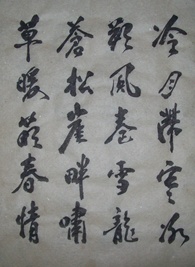 冷月寒冰
朔風卷雪龍
蒼松崖畔嘯
草暖春情